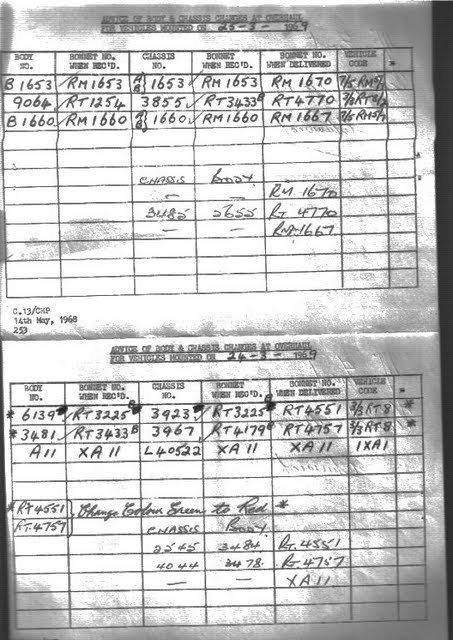 ADVICE OF BODY & CHASSIS CHANGES AT OVERHAUL
FOR VEHICLES MOUNTED ON 25-3- 1969
BODY NO. BONNET NO. WHEN REC'D. CHASSIS NO. BONNET WHEN REC'D. BONNET NO. WHEN DELIVERED VEHICLE CODE *
B1653 RM1653 A/B} 1653 RM1653 RM 1670
9064 RT1254 3855 RT3433 RT4770
B1660 RM1660 A/B} 1660 RM1660 RM1667
CHASSIS BODY
— — RM 1670
3485 5655 RT 4770
— — RM 1667
C.13/CHP
14th May, 1968
253
ADVICE OF BODY & CHASSIS CHANGES AT OVERHAUL
FOR VEHICLES MOUNTED ON 24-3- 1969
BODY NO. BONNET NO. WHEN REC'D. CHASSIS NO. BONNET WHEN REC'D. BONNET NO. WHEN DELIVERED VEHICLE CODE *
* 6139 RT3225 3923 RT3225 RT4551 2/3 RT8
* 3481 RT3433 3967 RT4179 RT4757 2/3 RT8
A11 XA11 L40522 XA11 XA11 1XA1
* RT4551 } Change Colour Green to Red *
RT.4757
CHASSIS BODY
2545 3484 RT.4551
4044 3478 RT.4757
— — XA11